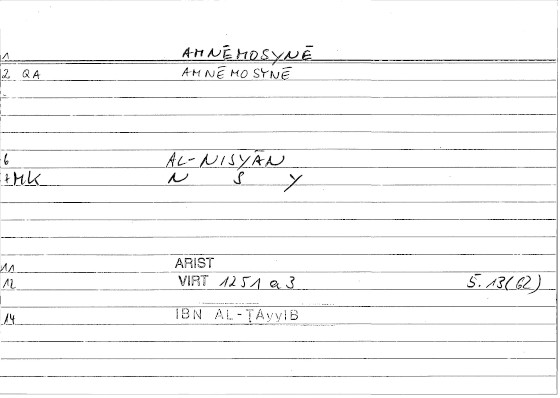 1 AMNĒMOSYNĒ
2 QA AMNĒMOSYNĒ
6 AL-NISYĀN
+MK N S Y
11 ARIST
12 VIRT 1251 a 3 5.13(62)
14 IBN AL-ṬAyyIB